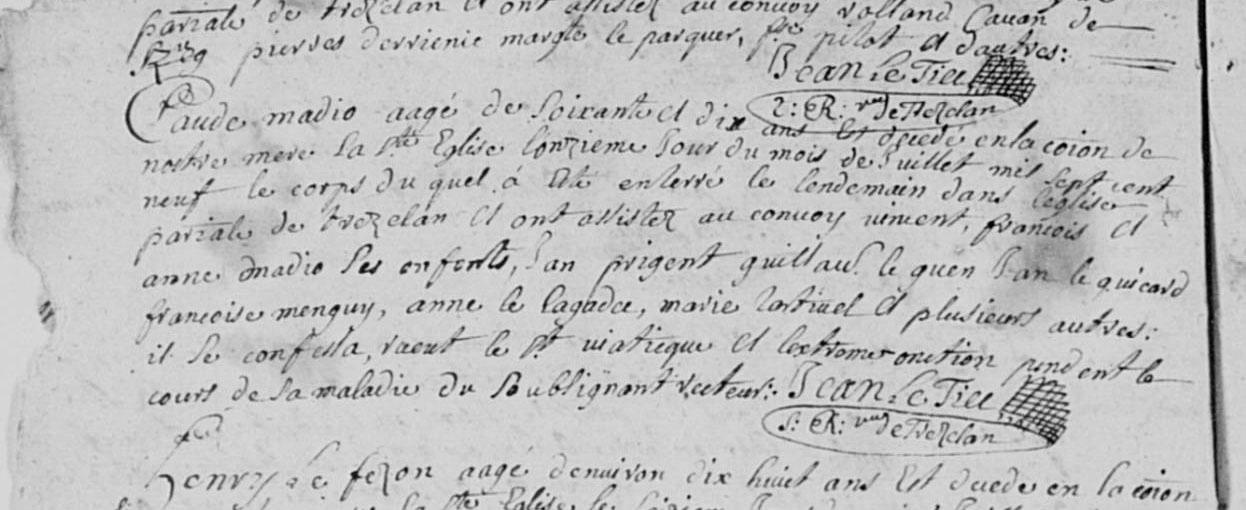 pariale de trezelan et ont assistez au convoy rolland Cavan de
pierres derrienic margte le parquer, pilot et d'autres:
Jean le Tiec
S: R: de Trezelan
Claude madio aagé de soixante et dix ans est decedé en la coion de
nostre mere la Ste Eglise l'onzieme jour du mois de juillet mil sept cent
neuf le corps du quel a été enterré le lendemain dans l'eglise
pariale de trezelan et ont assistez au convoy vincent, francois et
anne madio ses enfents, jan prigent guillau. le quen jan le quicard
francoise menguy, anne le lagadec, marie et plusieurs autres:
il se confessa, raceut le St viatique et l'extreme onction pendent le
cours de sa maladie du soubsignant recteur: Jean le Tiec
S: R: de Trezelan
henry le fezon aagé d'environ dix huict ans est decedé en la coion
la Ste Eglise le